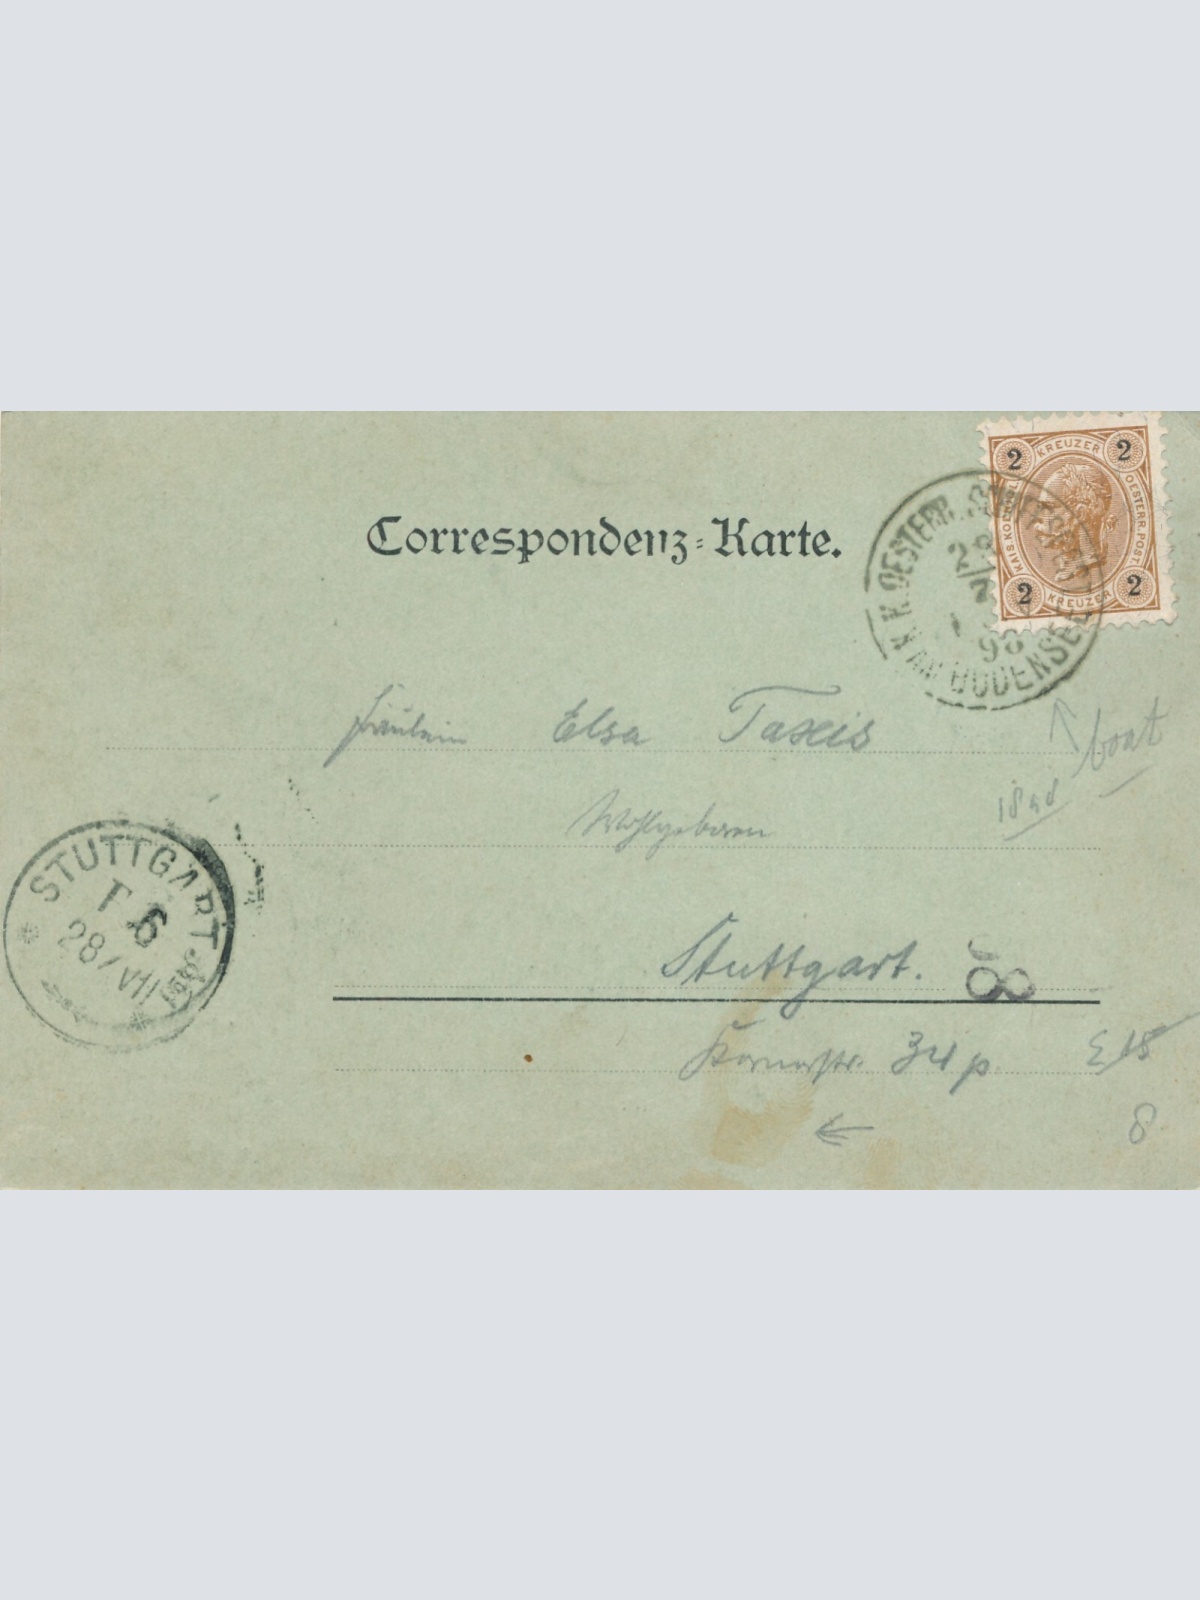 Correspondenz-Karte.
2 KREUZER 2
KAIS. KOENIGL. OESTERR. POST.
2 KREUZER 2
K. K. OESTERR.
28
7
98
AM BODENSEE
Fräulein Elsa Taxis
boat
1898
Wohlgeboren
STUTTGART
6
28/VII
Stuttgart.
8
34 p
£ 15
8